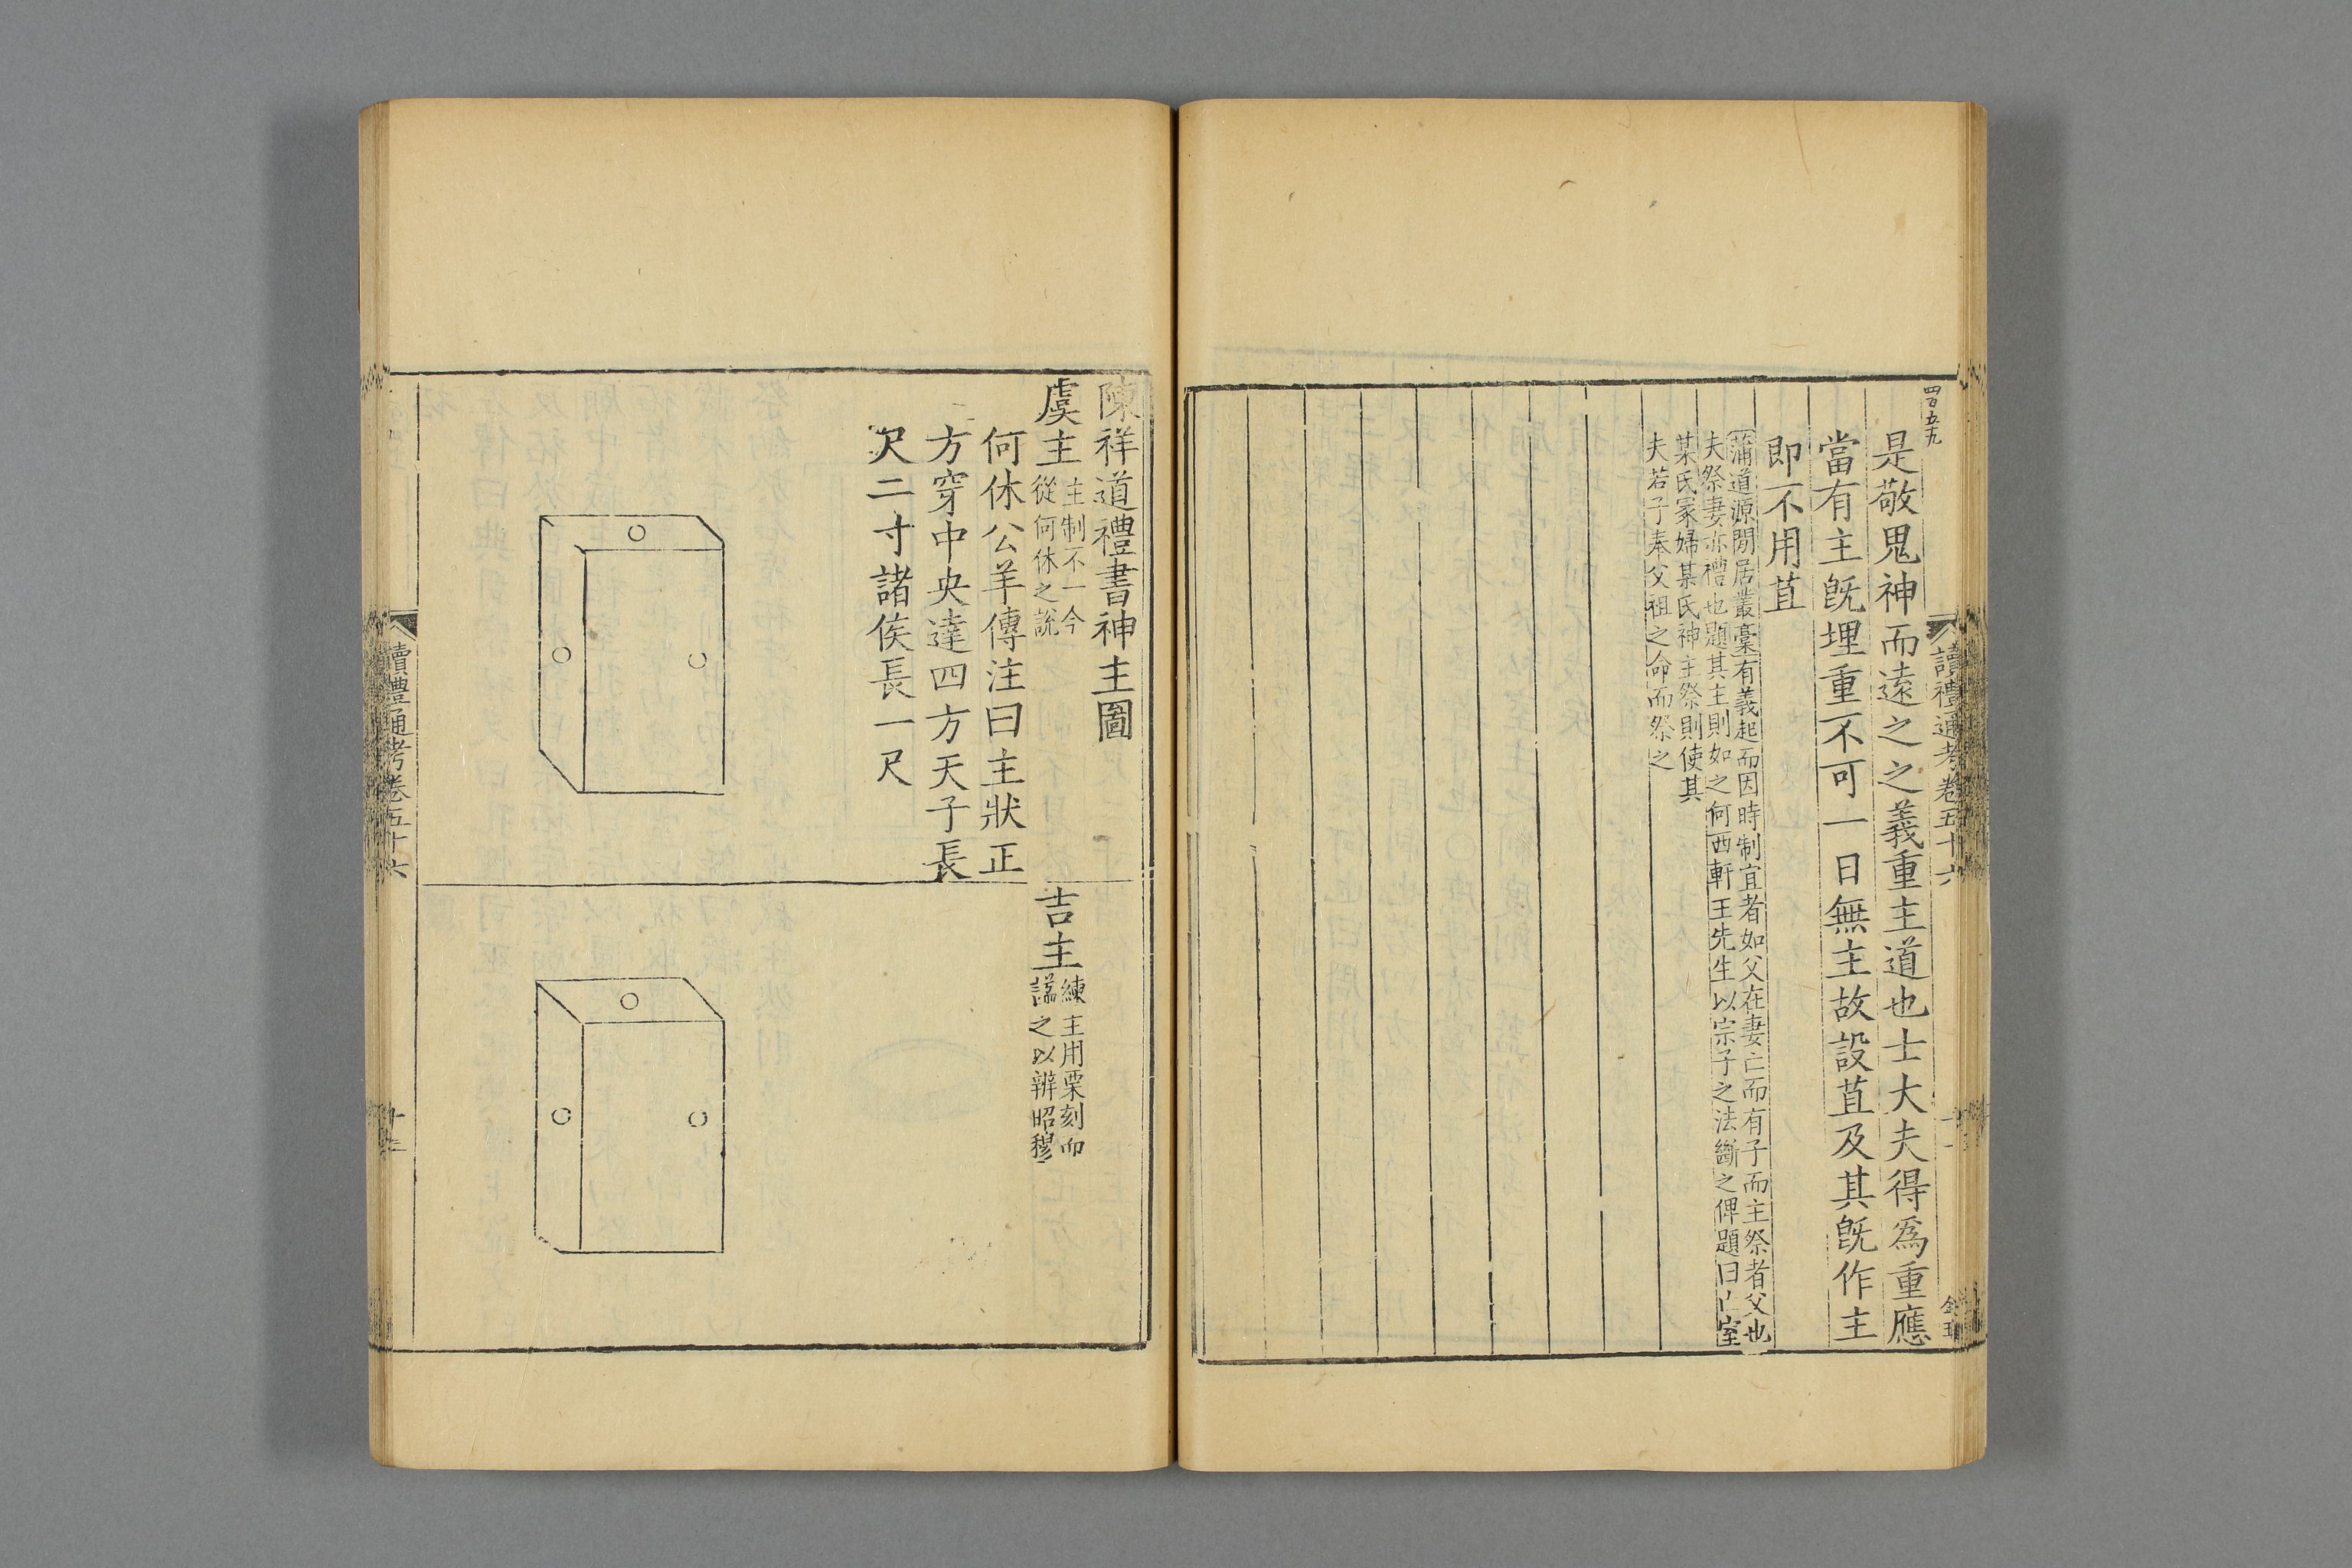 四百五九
讀禮通考卷五十六
是敬鬼神而遠之之義重主道也士大夫得爲重應
當有主既埋重不可一日無主故設苴及其既作主
即不用苴
蒲道源閒居叢藳有義起而因時制宜者如父在妻亡而有子而主祭者父也
夫祭妻亦禮也題其主則如之何西軒王先生以宗子之法斷之俾題曰亡室
某氏冢婦某氏神主祭則使其
夫若子奉父祖之命而祭之
陳祥道禮書神主圖
虞主
主制不一今
從何休之說
何休公羊傳注曰主狀正
方穿中央達四方天子長
尺二寸諸侯長一尺
吉主
練主用栗刻而
謚之以辨昭穆
讀禮通考卷五十六